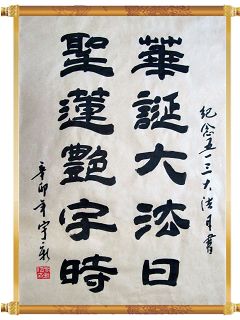 紀念五一三大法日書
華誕大法日
聖蓮艷宇時
辛卯年宇彩